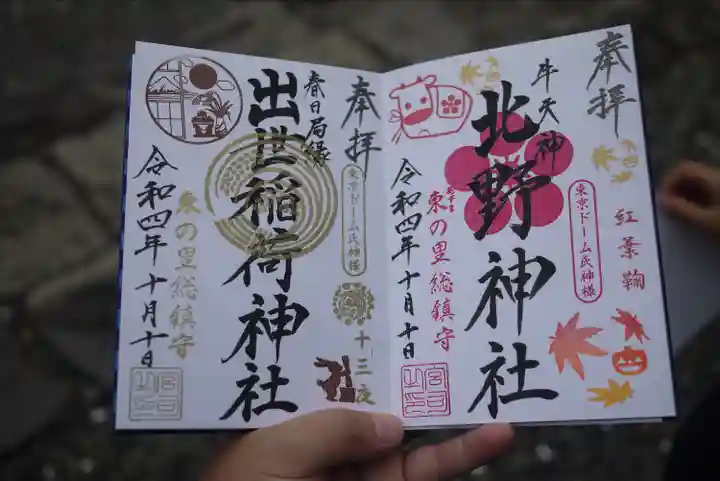 奉拝
紅葉鞠
東京ドーム氏神様
牛天神
北野神社
東の里総鎮守
令和四年十月十日
奉拝
東京ドーム氏神様
十三夜
春日局縁
出世稲荷神社
東の里総鎮守
令和四年十月十日